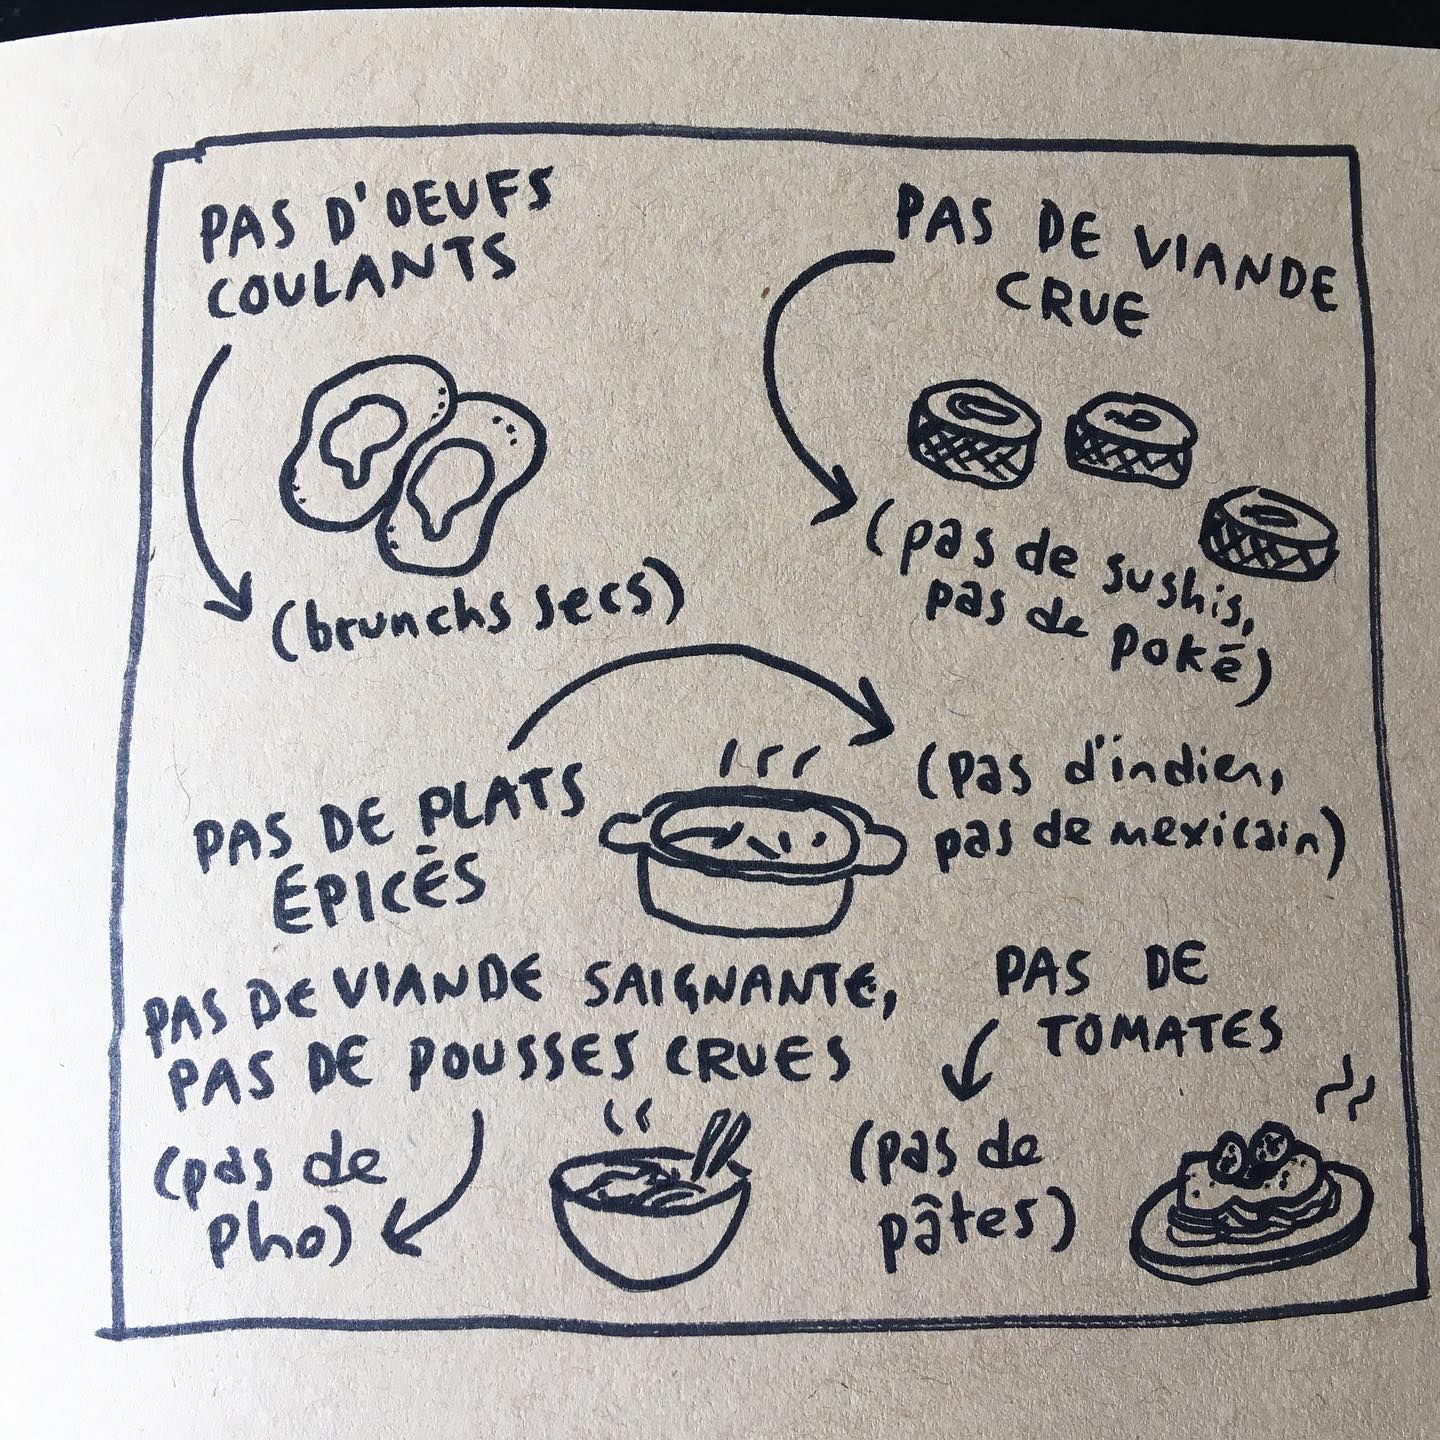 PAS D'OEUFS
COULANTS
(brunchs secs)
PAS DE VIANDE
CRUE
(pas de sushis,
pas de poké)
PAS DE PLATS
ÉPICÉS
(pas d'indien,
pas de mexicain)
PAS DE VIANDE SAIGNANTE,
PAS DE POUSSES CRUES
(pas de
pho)
PAS DE
TOMATES
(pas de
pâtes)